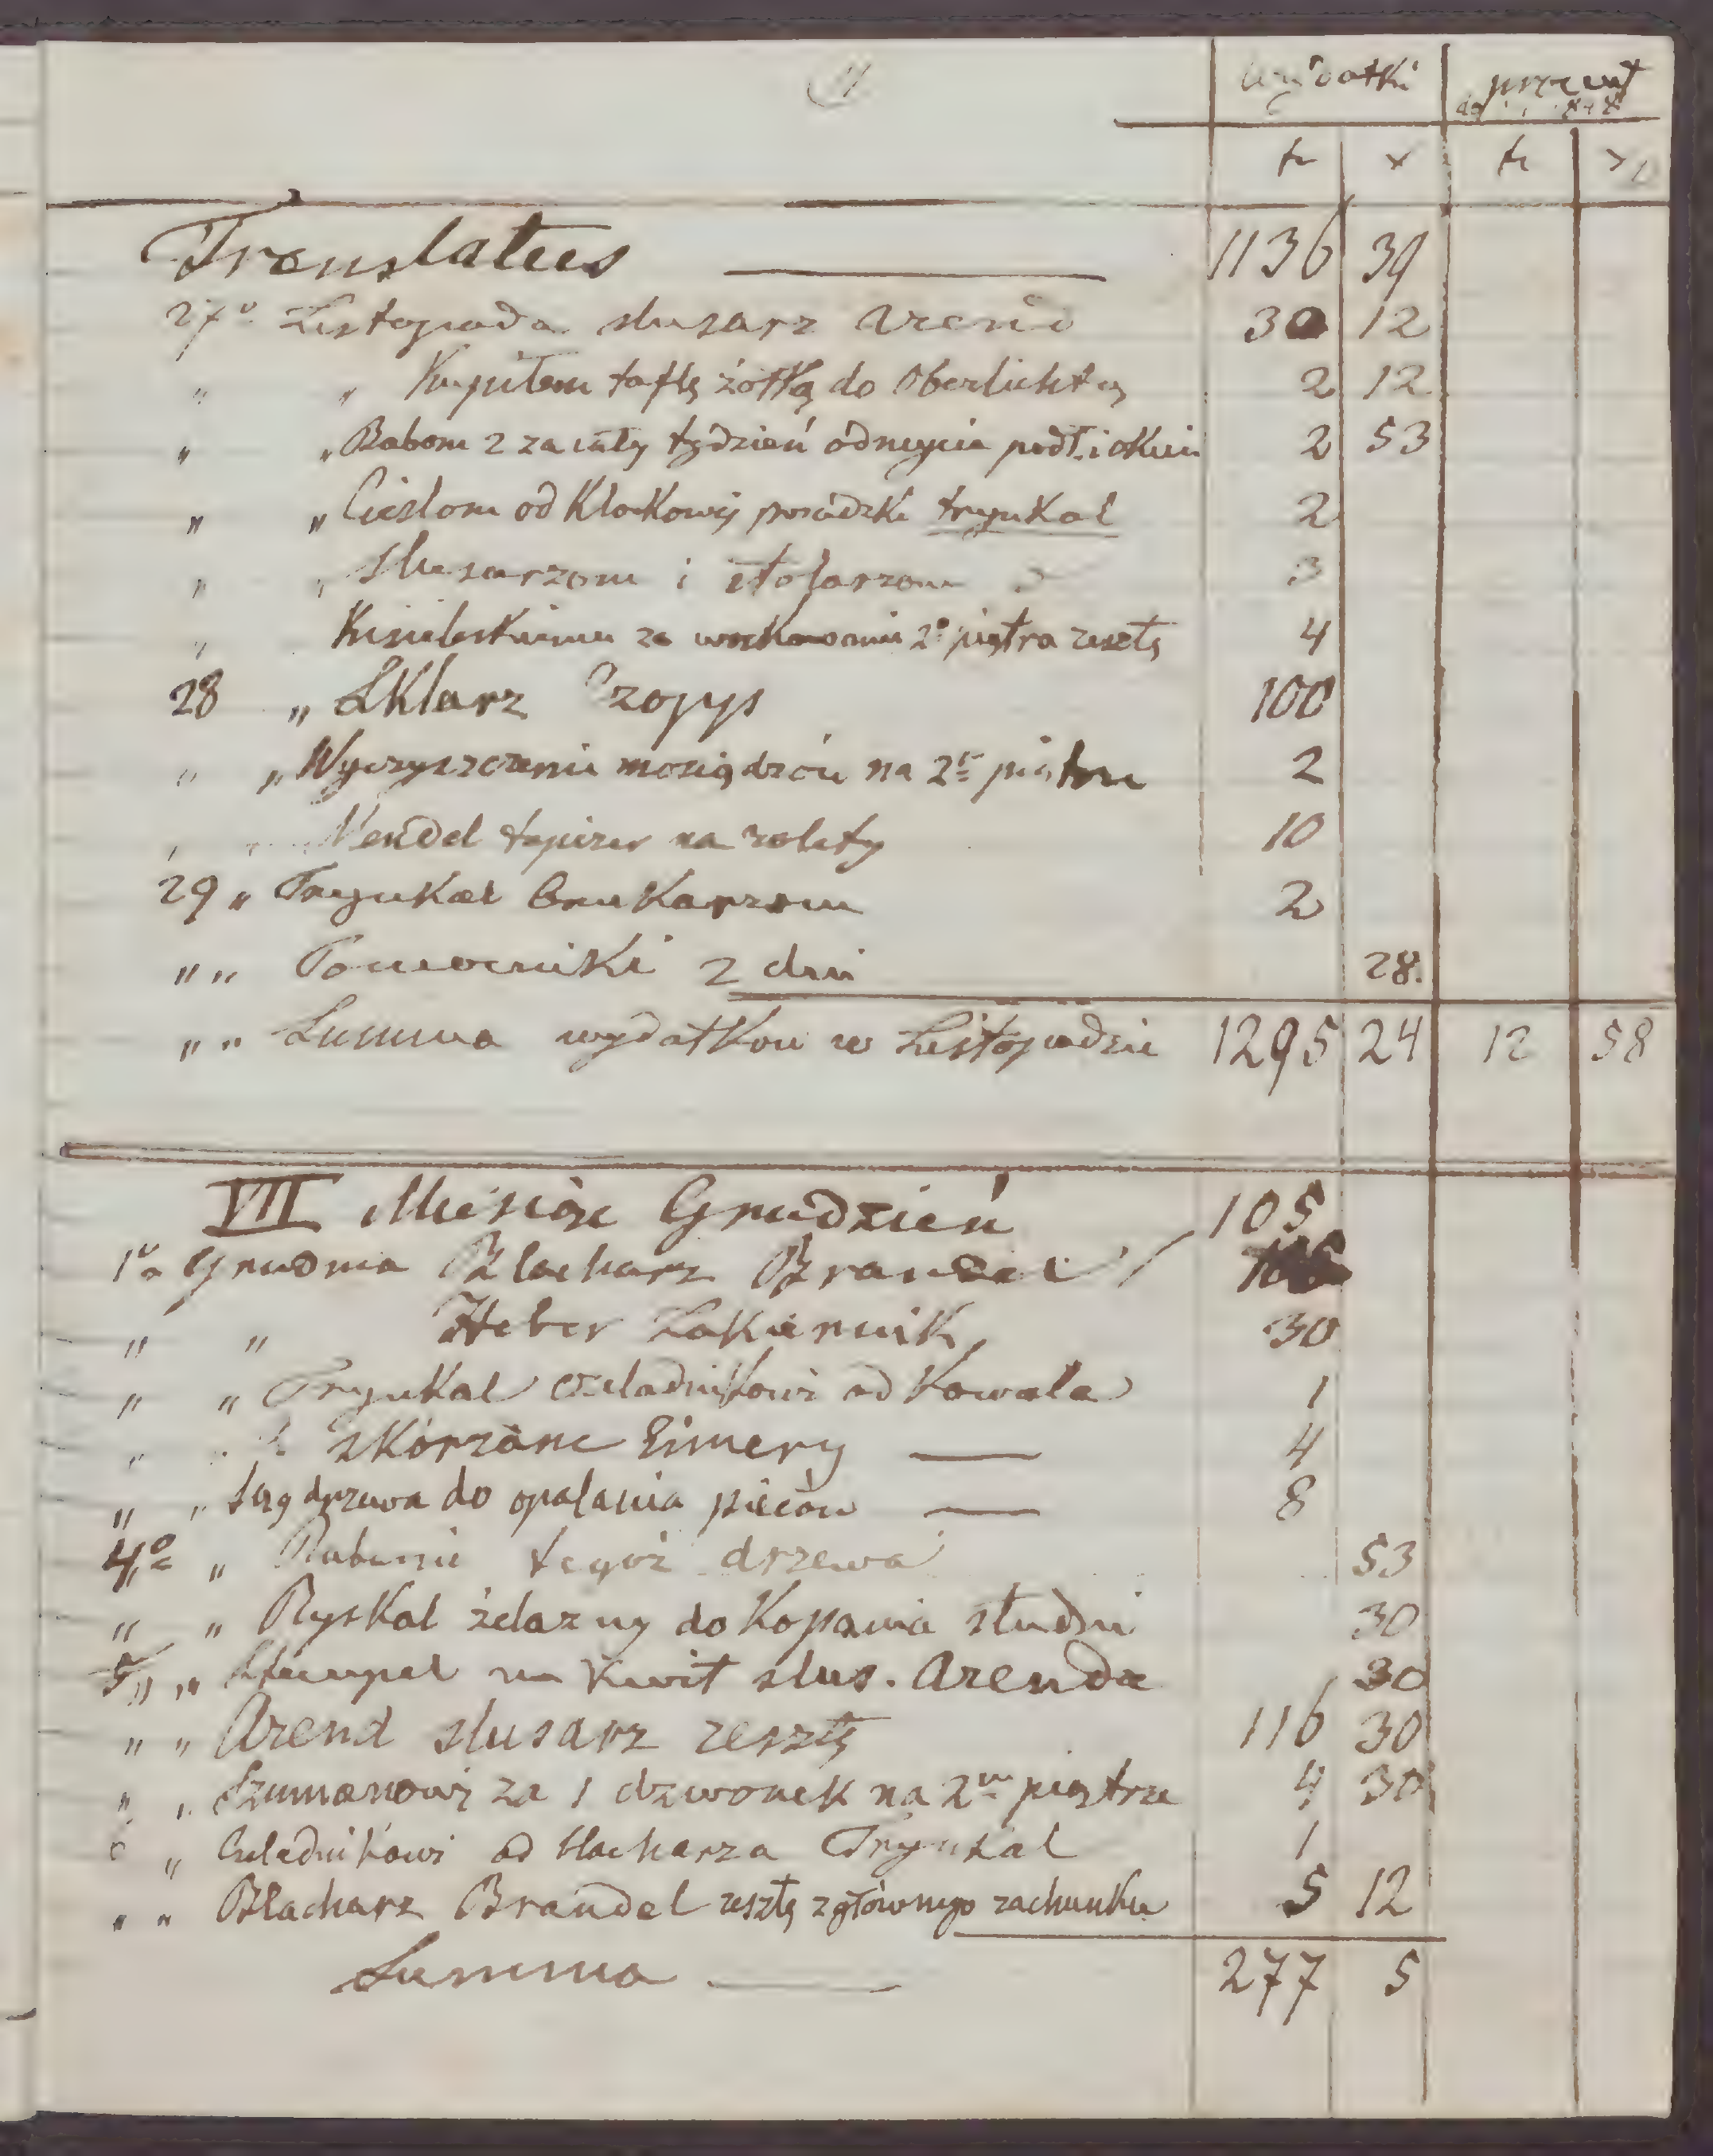 wydatki procent
fr x fr x
Translatus 1136 39
27º Listopada slusarz Arend 30 12
" " Kupiłem taflę żółtą do Oberlichtu 2 12
" " Babom 2 za cały tydzień odmycia podł. i okien 2 53
" " Cieslom od Klockowej posadzki trynkal 2
" " slusarzom i stolarzom 3
" Kisieleskiemu za woskowanie 2º piętra resztę 4
28 " Sklarz Czopys 100
" " Wyczyszczenie mosiądzów na 2m piętrze 2
Wendel tapicer na rolety 10
29 " Trynkal Brukarzom 2
" " Pomocniki 2 dni 28.
" " Summa wydatkow w Listopadzie 1295 24 12 58
VII Miesiąc Grudzień 105
1º Grudnia Blacharz Brandel
" " Heber Lakiernik 30
" " Trynkal czeladnikowi od Kowala 1
skórzane Eimery 4
" " Sąg drzewa do opalania pieców 8
4º " Rubanie tegoż drzewa 53
" " Ryskal żelazny do Kopania studni 30
5 " " Stempel na Kwit slus. Arenda 30
" " Arend slusarz resztę 116 30
" " Szumanowi za 1 dzwonek na 2m piętrze 4 30
6 " Czeladnikowi od blacharza Trynkal 1
" " Blacharz Brandel resztę z głównego rachunku 5 12
Summa 277 5